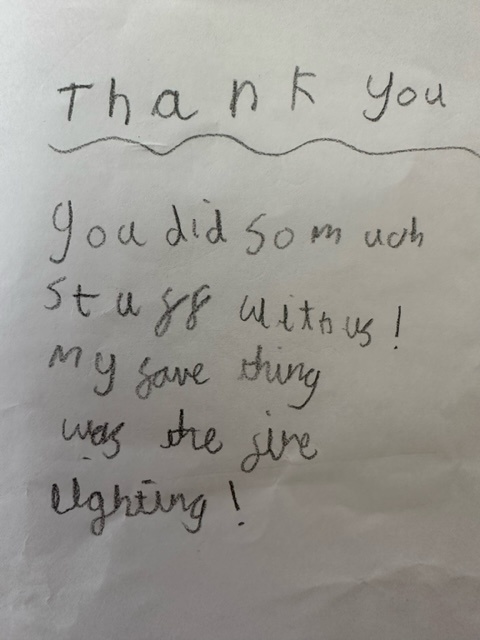 Thank you
you did so much
stuff with us!
my fave thing
was the fire
lighting!